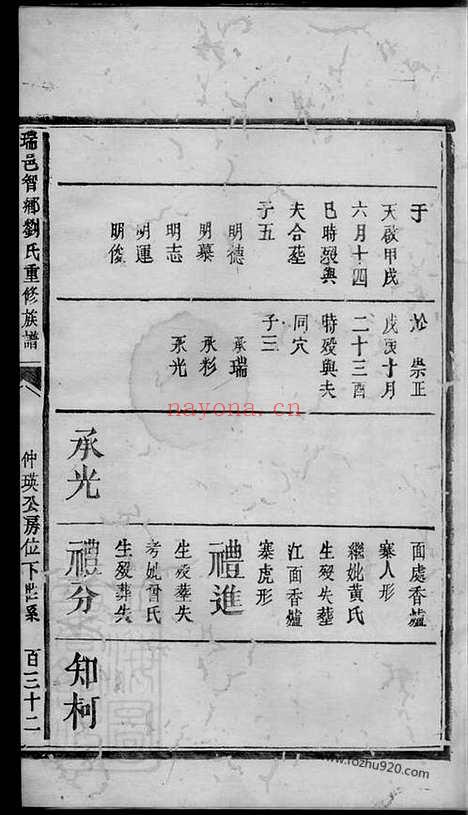 于
天啟甲戌
六月十四
巳時歿與
夫合塟
子五
明德
明慕
明志
明運
明俊
於崇正
戊寅十月
二十三酉
時歿與夫
同穴
子三
承瑞
承彩
承光
承光
面處香爐
寨人形
繼妣黃氏
生歿失塟
江面香爐
寨虎形
禮進
生歿塟失
考妣曾氏
生歿葬失
禮分
知柯
瑞邑智鄉劉氏重修族譜
仲瑛公房位下世系
百三十二
nayona.cn
www.fozhu920.com